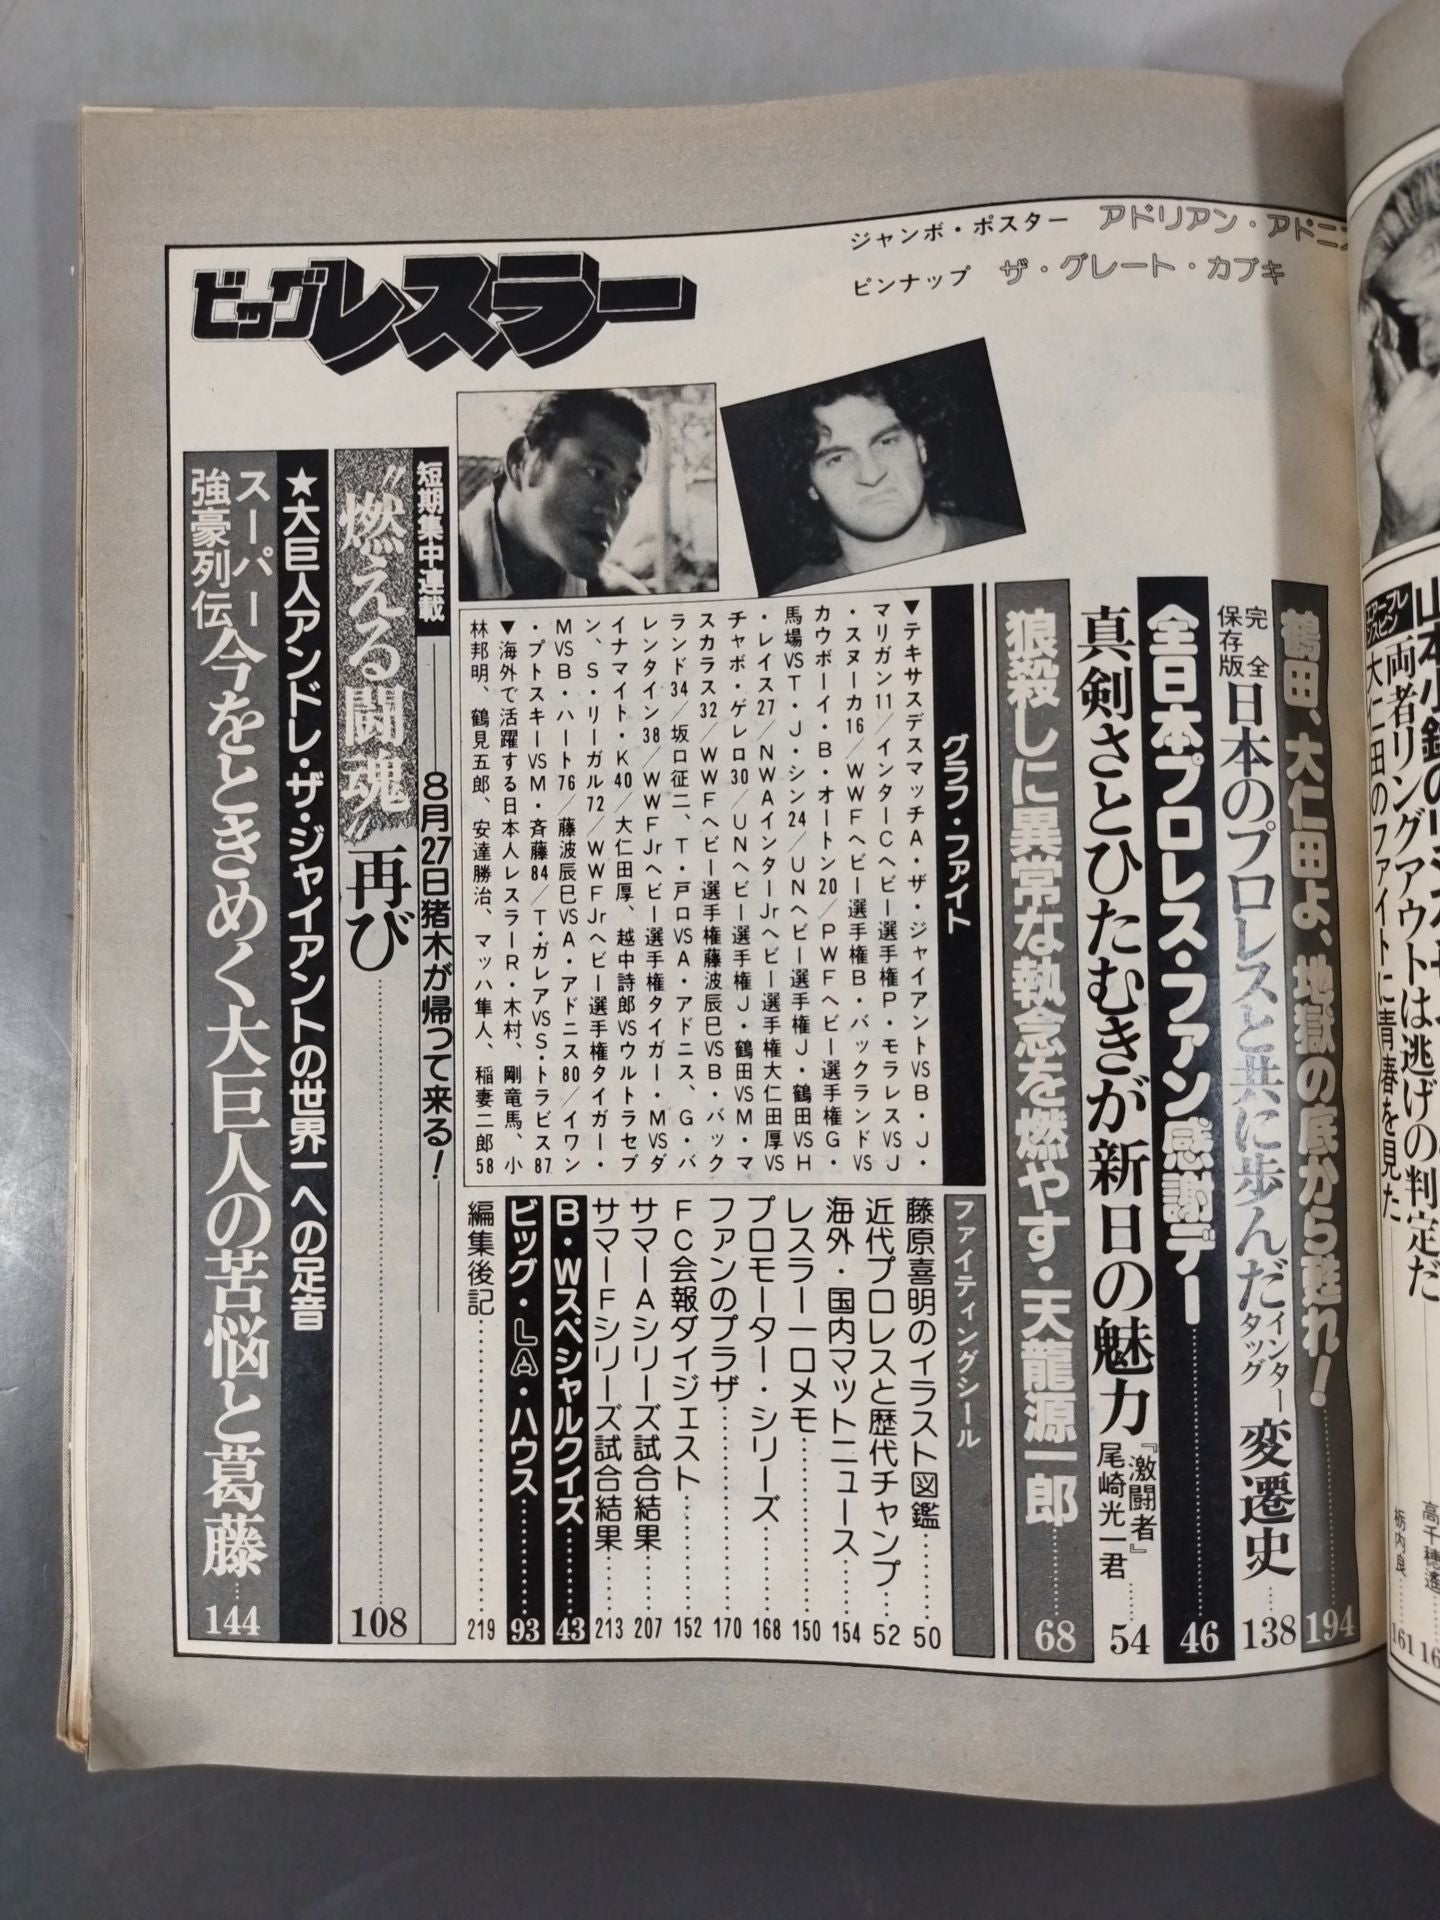 ジャンボ・ポスター アドリアン・アドニス
ピンナップ ザ・グレート・カブキ
ビッグレスラー
両者リングアウトは逃げの判定だ
大仁田のファイトに青春を見た
栃内良……161
高千穂遙
鶴田、大仁田よ、地獄の底から甦れ!……194
完全保存版
日本のプロレスと共に歩んだインタータッグ変遷史……138
全日本プロレス・ファン感謝デー……46
真剣さとひたむきが新日の魅力 『激闘者』尾崎光一君……54
狼殺しに異常な執念を燃やす・天龍源一郎……68
グラフ・ファイト
▼テキサスデスマッチA・ザ・ジャイアントVSB・J・
マリガン11/インターCヘビー選手権P・モラレスVSJ
・スヌーカ16/WWFヘビー選手権B・バックランドVS
カウボーイ・B・オートン20/PWFヘビー選手権G・
馬場VST・J・シン24/UNヘビー選手権J・鶴田VSH
・レイス27/NWAインターJrヘビー選手権大仁田厚VS
チャボ・ゲレロ30/UNヘビー選手権J・鶴田VSM・マ
スカラス32/WWFヘビー選手権藤波辰巳VSB・バック
ランド34/坂口征二、T・戸口VSA・アドニス、G・バ
レンタイン38/WWFJrヘビー選手権タイガー・MVSダ
イナマイト・K40/大仁田厚、越中詩郎VSウルトラセブ
ン、S・リーガル72/WWFJrヘビー選手権タイガー・
MVSB・ハート76/藤波辰巳VSA・アドニス80/イワン
・プトスキーVSM・斉藤84/T・ガレアVSS・トラビス87
▼海外で活躍する日本人レスラーR・木村、剛竜馬、小
林邦明、鶴見五郎、安達勝治、マッハ隼人、稲妻二郎58
ファイティングシール
藤原喜明のイラスト図鑑……50
近代プロレスと歴代チャンプ……52
海外・国内マットニュース……154
レスラー一口メモ……150
プロモーター・シリーズ……168
ファンのプラザ……170
FC会報ダイジェスト……152
サマーAシリーズ試合結果……207
サマーFシリーズ試合結果……213
B・Wスペシャルクイズ……43
ビッグ・LA・ハウス……93
編集後記……219
短期集中連載 8月27日猪木が帰って来る!
“燃える闘魂”再び……108
★大巨人アンドレ・ザ・ジャイアントの世界一への足音
スーパー強豪列伝 今をときめく大巨人の苦悩と葛藤……144